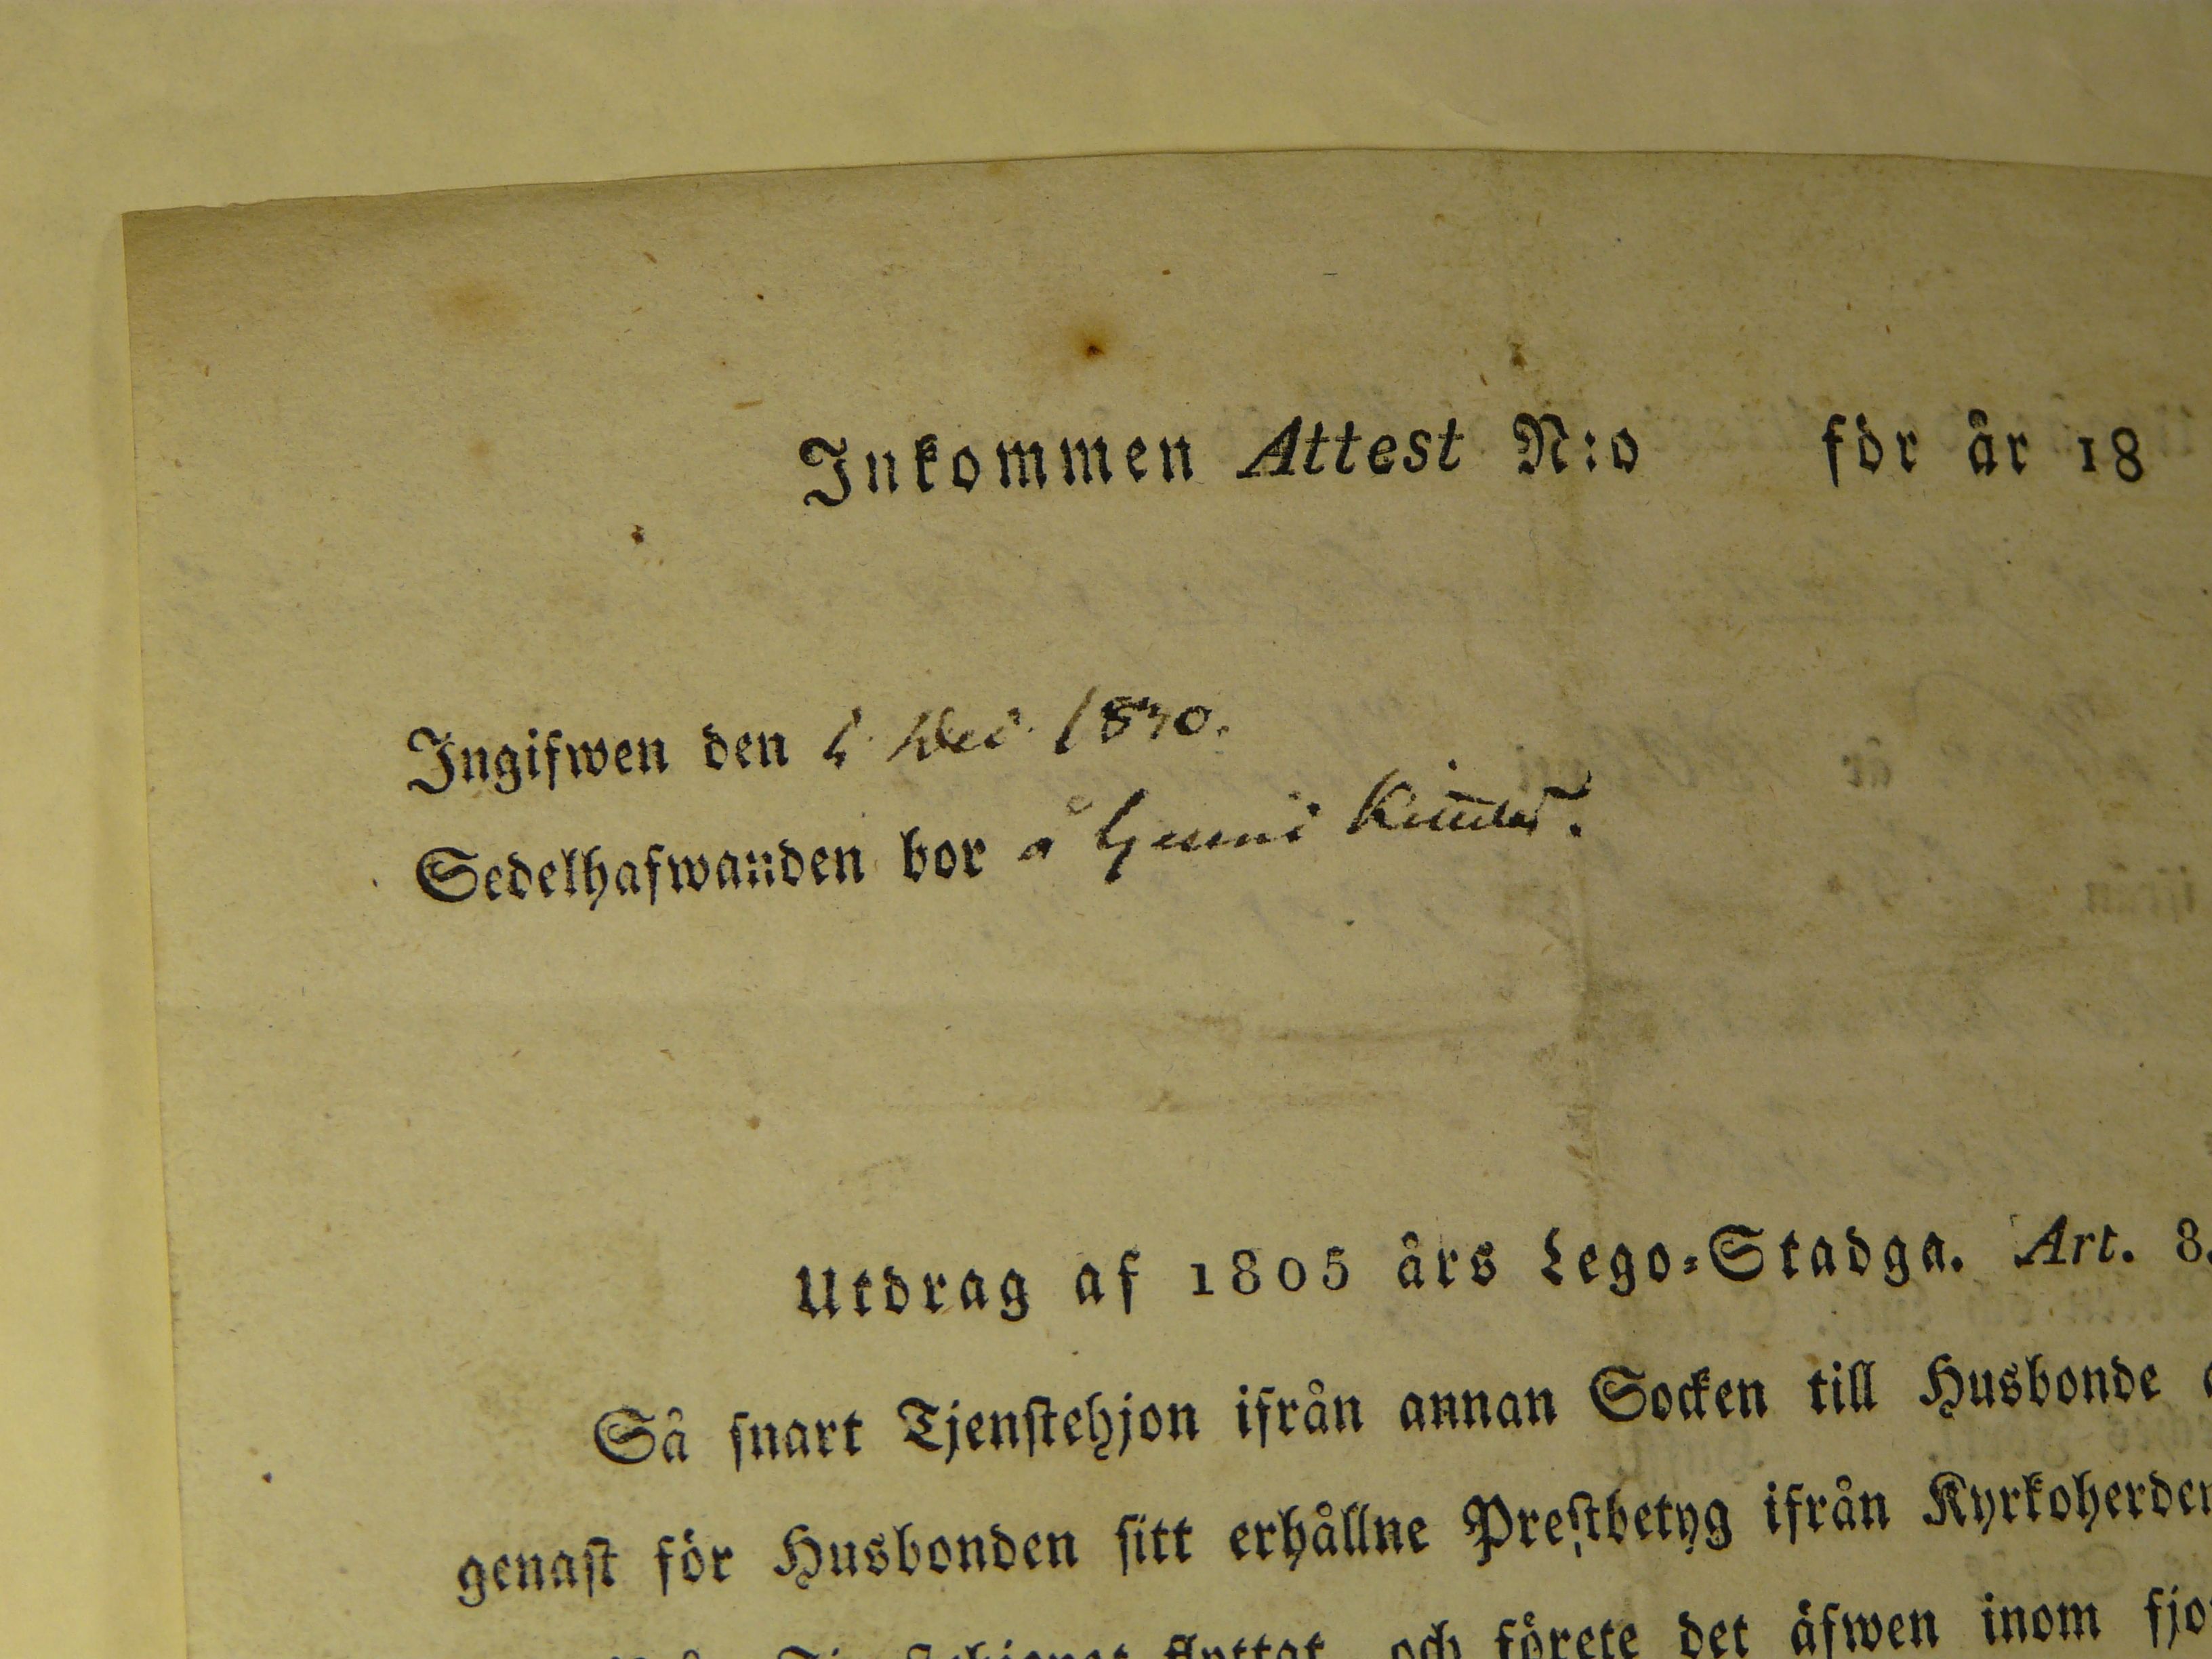 Inkommen Attest N:o för år 18
Ingifwen den Dec. 1830.
Sedelhafwanden bor å
Utdrag af 1805 års Lego-Stadga. Art. 8.
Så snart Tjenstehjon ifrån annan Socken till Husbonde
genast för Husbonden sitt erhållne Prestbetyg ifrån Kyrkoherden
flyttat, och förete det äfwen inom fjo